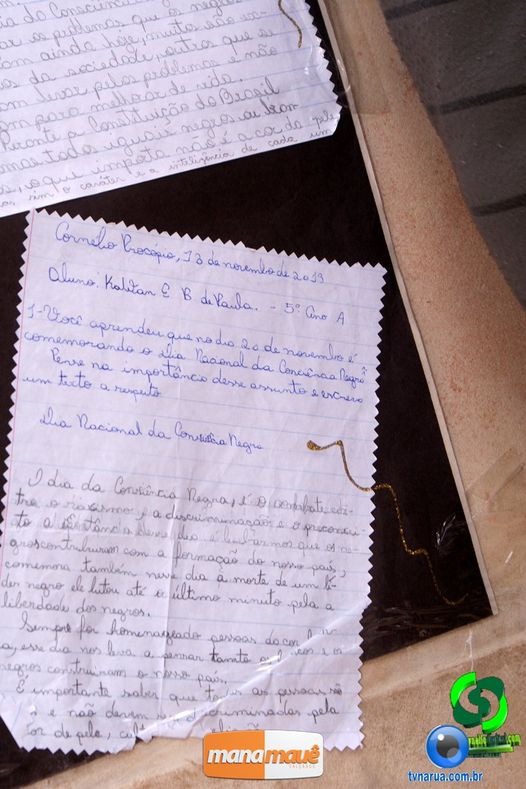 ia do Consciência
os problemas que os negros
ainda hoje, muito são ex-
da sociedade, outros que se
lutar pelos problemas e não
para melhorar de vida.
Perante a Constituição do Brasil
somos todos iguais negros ou bran
o que importa não é a cor da pele
sim o caráter e a inteligência de cada um
Cornelio Procópio, 13 de novembro de 2013
Aluno: Kalitan E B de Paula. - 5º Ano A
1-Você aprendeu que no dia 20 de novembro é
comemorando o dia Nacional da Conciência Negra
Pense na importância desse assunto e escreva
um texto a respeito
Dia Nacional da Consciência Negra
O dia da Conciência Negra, é o combate con
tra o racismo, a discriminação e o preconcei
to a importância desse dia é lembrarmos que os ne
gros contruiram com a formação do nosso país,
comemora também nesse dia a morte de um lí
der negro ele lutou até o último minuto pela a
liberdade dos negros.
Sempre foi homenageado pessoas da cor
esse dia nos leva a pensar tanto
negros contruiram o nosso país.
É importante saber que todas as pessoas são
e não devem ser discriminadas pela
cor de pele,
manamauê
CALÇADOS
tvnarua.com.br